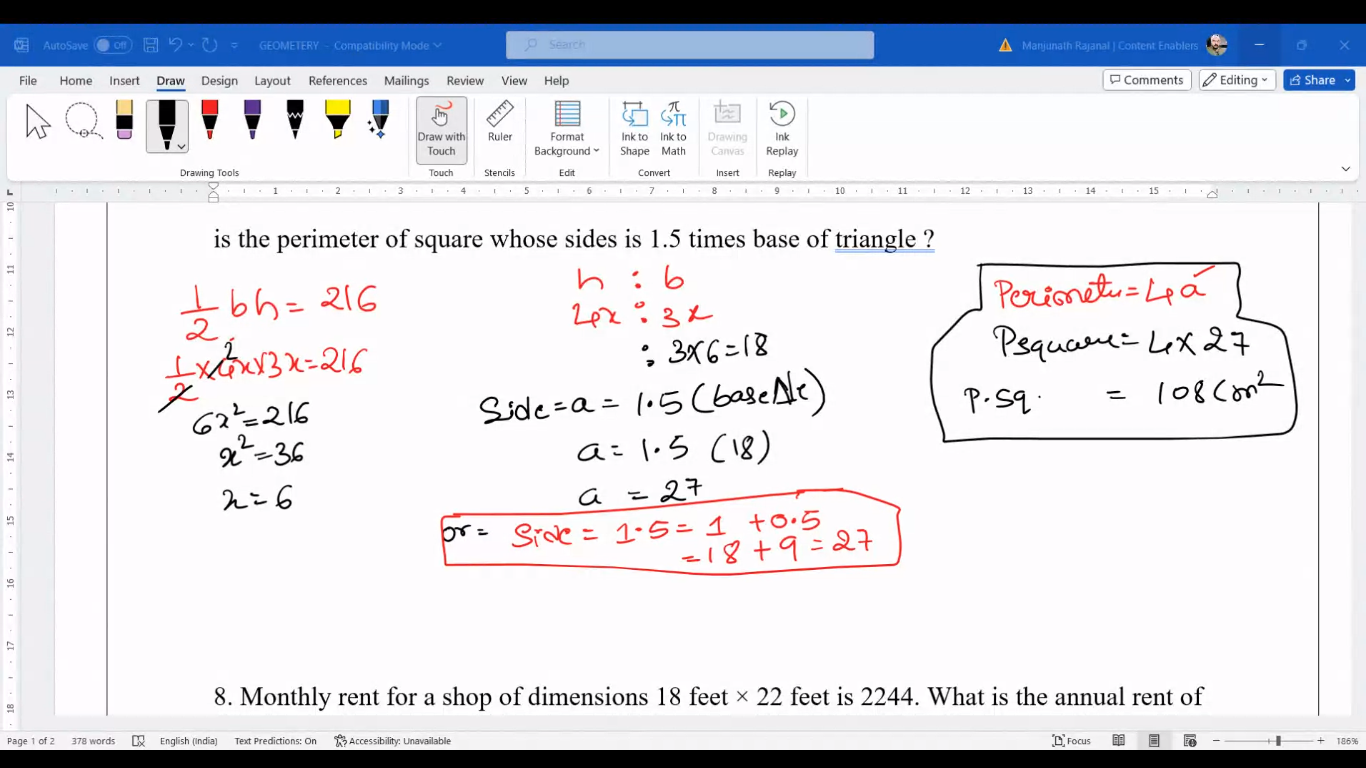 AutoSave Off GEOMETERY - Compatibility Mode Search Manjunath Rajanal | Content Enablers
File Home Insert Draw Design Layout References Mailings Review View Help Comments Editing Share
Draw with Touch Ruler Format Background Ink to Shape Ink to Math Drawing Canvas Ink Replay
Drawing Tools Touch Stencils Edit Convert Insert Replay
1 1 2 3 4 5 6 7 8 9 10 11 12 13 14 15
10
11
12
13
14
15
16
17
18
is the perimeter of square whose sides is 1.5 times base of triangle ?
1/2 bh = 216
1/2 × 4x × 3x = 216
2
6x² = 216
x² = 36
x = 6
h : b
4x : 3x
: 3×6=18
Side = a = 1.5 (base Δle)
a = 1.5 (18)
a = 27
or = Side = 1.5 = 1 + 0.5
= 18 + 9 = 27
Perimeter = 4a
Psquare = 4 × 27
P.Sq. = 108 Cm²
8. Monthly rent for a shop of dimensions 18 feet × 22 feet is 2244. What is the annual rent of
Page 1 of 2 378 words English (India) Text Predictions: On Accessibility: Unavailable Focus 186%